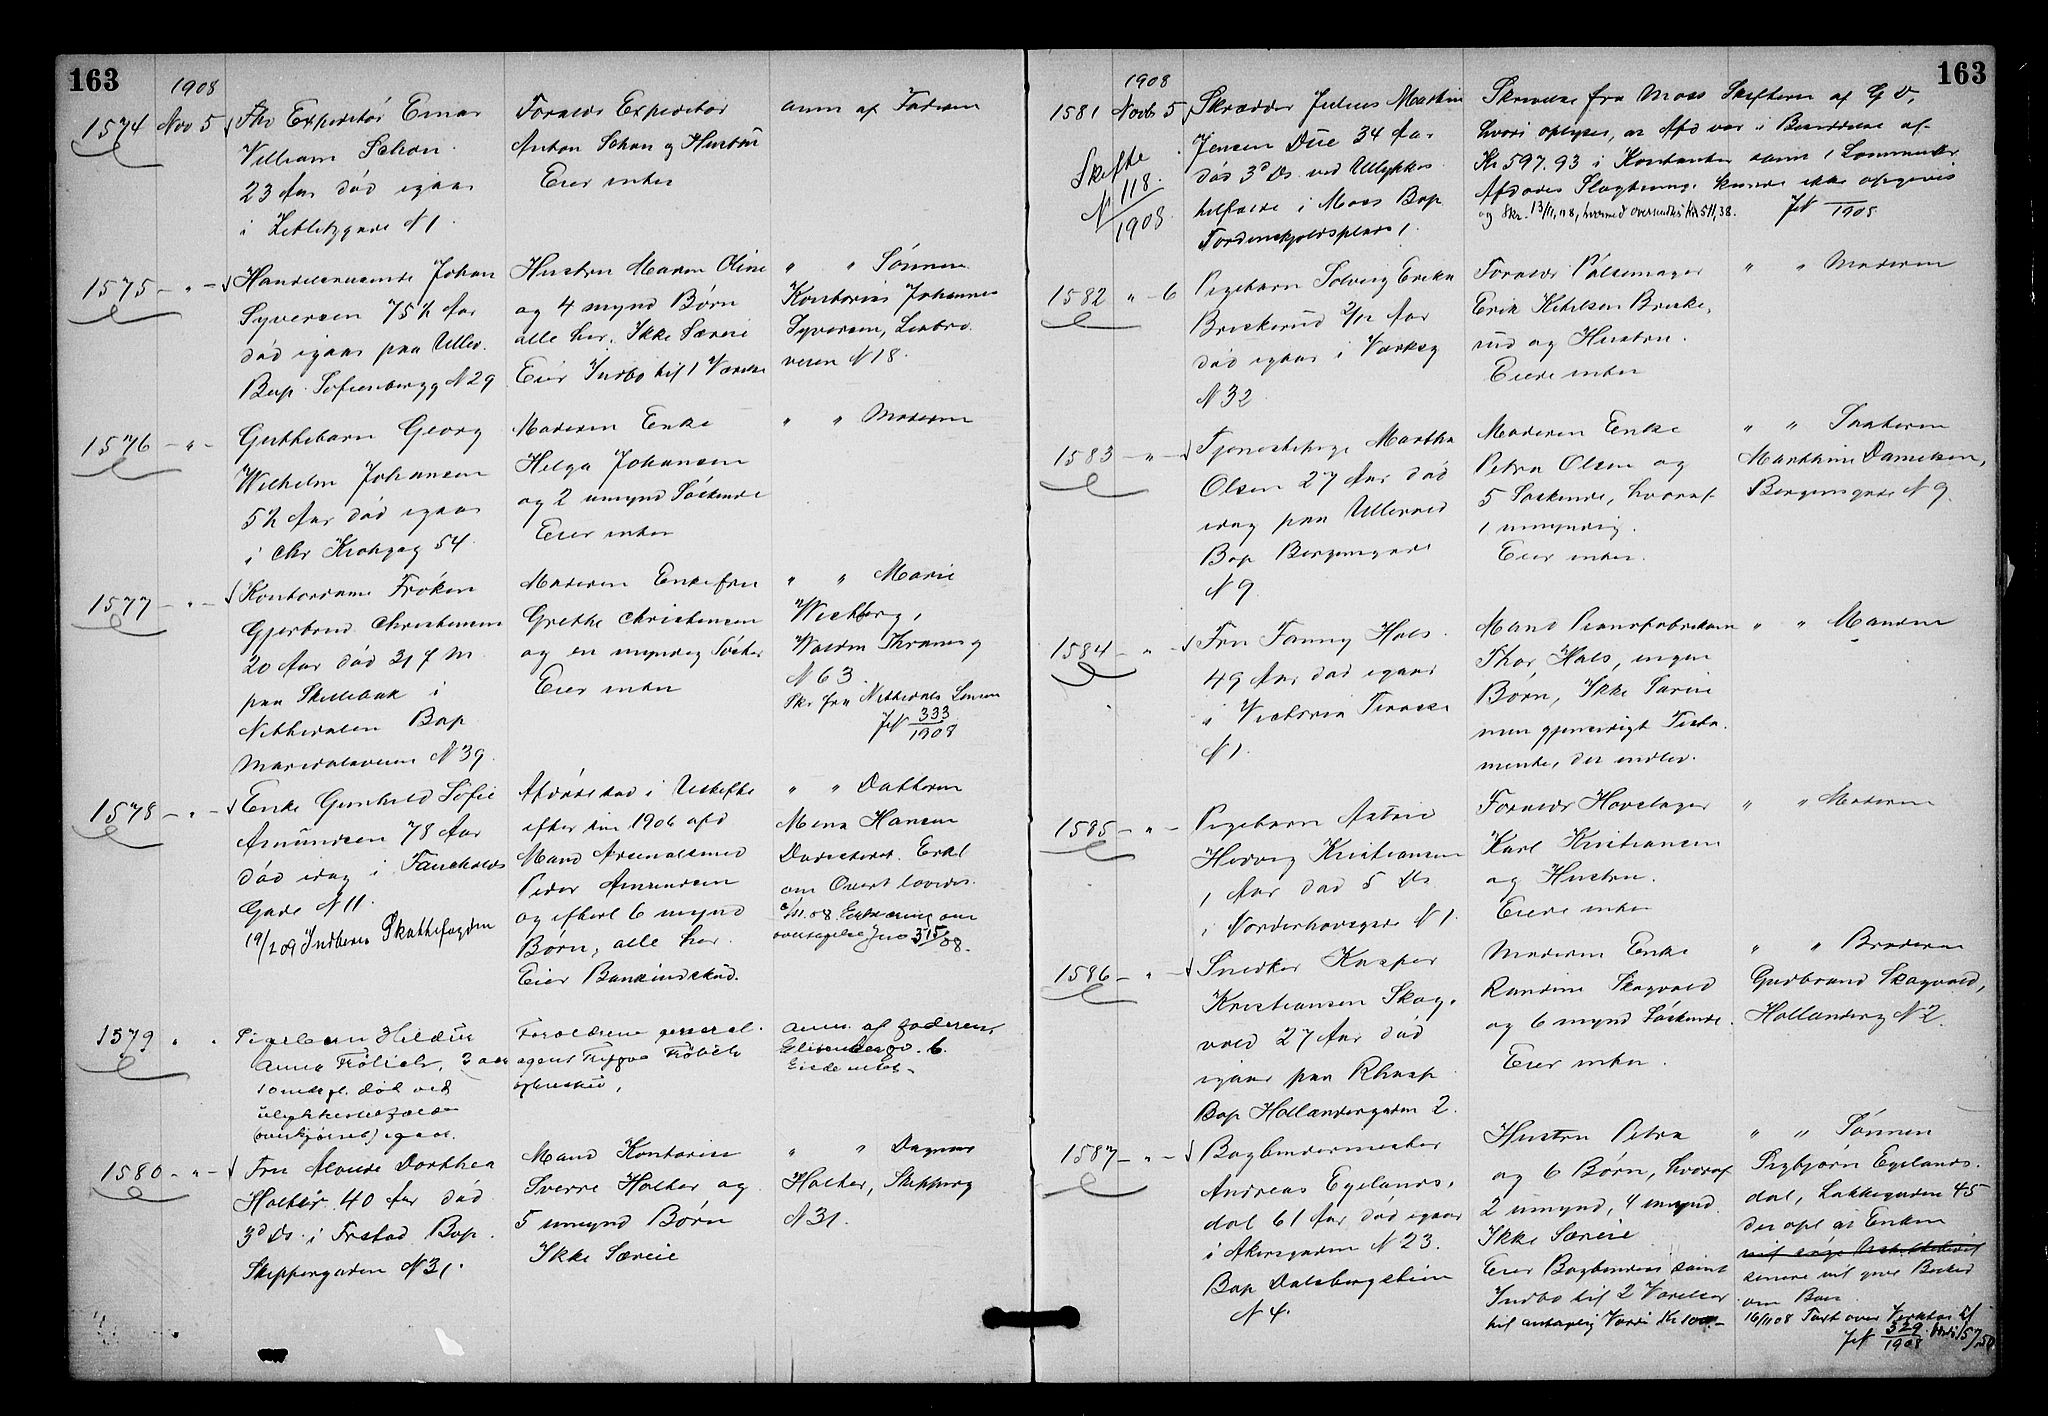 163
1908
1574 Nov 5 Fhv Expeditør Einar
William Schou
23 Aar død igaar
i Zetlitzgade N 1.
Forældr Expeditør
Anton Schou og Hustru
Eier intet
anm af Faderen
1575 - " - Handelsreisende Johan
Syversen 75½ Aar
død igaar paa Ullev.
Bop. Sofienbergg N 29
Hustru Maren Oline
og 4 mynd Børn
alle her. Ikke Særeie
Eier Indbo til 1 Værelse
" " Sønnen
Kontorist Johannes
Syversen,
veien N 18.
1576 - " - Guttebarn Georg
Wilhelm Johansen
5½ Aar død igaar
i Chr Krohgsg 54.
Moderen Enke
Helga Johansen
og 2 umynd Søskende
Eier intet
" " Moderen
1577 - " - Kontordame Frøken
Gjerbrud Christensen
20 Aar død 31 f M
paa Skillebæk i
Nittedalen Bop
Maridalsveien N 39.
Moderen Enkefru
Grethe Christensen
og en myndig Søster
Eier intet
" " Marie
Westberg,
Waldem Thranesg
N 63.
Skr fra Nittedals Lensm
JN 333/1908
1578 - " - Enke Gunhild Sofie
Amundsen 78 Aar
død idag i Fauchalds
Gade N 11.
19/2 09 Indberet Skattefogden
Afdøde sad i Uskifte
efter sin 1906 afd
Mand Arsenalsmed
Peder Amundsen
og efterl 6 mynd
Børn, alle her.
Eier Bankindskud.
" " Datteren
Mena Hansen
Darresteret. Erkl
om Overt lovedes.
/11.08. Erklæring om
overtagelse Jno 315/08.
1579 " " Pigebarn Hildur
Anna Frölich, 3 aar
10 mdr gl. død ved
ulykkestilfælde
(overkjørsel) igaar.
Forældrene general-
agent Trygve Frölich
og hustru,
anm. af faderen,
Elisenbergv. 6.
Eiede intet -
1580 - " - Fru Alvilde Dorthea
Holter 40 Aar død
3d Ds. i Frstad Bop.
Skippergaden N 31.
Mand Kontorist
Sverre Holter og
5 umynd Børn
Ikke Særeie
" " Dagmar
Holter, Skipperg
N 31.
163
1908
1581 Novb 5 Skrædder Julius Martin
Jensen Due 34 Aar
død 3d Ds. ved Ulykkes
tilfælde i Moss Bop
Tordenskjoldsplads 1.
Skifte
N 118/1908
Skrivelse fra Moss Skifteret af G D,
hvori oplyses, at Afd var i Besiddelse af
Kr 597.93 i Kontanter samt 1 Lommeuhr
Afdødes Slægtninge kunde ikke opgives
og Skr. 13/11.08, hvormed oversendtes kr 511,38.
JN /1908
1582 " - 6 Pigebarn Solveig Erika
Briskerud 2/12 Aar
død igaar i Verksg
N 32
Forældr Pølsemager
Erik Ketilsen Briske,
rud og Hustru.
Eiede intet
" " Moderen
1583 - " - Tjenestepige Martha
Olsen 27 Aar død
idag paa Ullevaal
Bop Bergensgade
N 9.
Moderen Enke
Petra Olsen og
5 Søskende, hvoraf
1 umyndig.
Eier intet.
" " Søsteren
Marthine Danielsen,
Bergensgade N 9.
1584 - " - Fru Fanny Hals
49 Aar død igaar
i Victoria Terasse
N 1.
Mand Pianofabrikant
Thor Hals, ingen
Børn, Ikke Særeie
men gjensidigt Testa-
mente, der indlev.
" " Manden
1585 - " - Pigebarn Astrid
Hedvig Kristiansen
1 Aar død 5 Ds
i Norderhovsgade N 1.
Forældr Hovslager
Karl Kristiansen
og Hustru.
Eiede intet
" " Moderen
1586 - " - Snedker Kasper
Kristiansen Skog,
vold 27 Aar død
igaar paa Rhosp
Bop Hollændergaden 2.
Moderen Enke
Randine Skogvold
og 6 mynd Søskende.
Eier intet.
" " Broderen
Gudbrand Skogvold,
Hollænderg N 2.
1587 - " - Bogbindermester
Andreas Egelands,
dal 61 Aar død igaar
i Akersgaden N 23.
Bop Dalsbergstien
N 4.
Hustru Petra
og 6 Børn, hvoraf
2 umynd, 4 mynd.
Ikke Særeie
Eier Bogbinderi samt
Indbo til 2 Værelser
til antagelig Værdi Kr 1000.-
" " Sønnen
Sigbjørn Egelands.
dal, Lakkegaden 45
der opl at Enken
senere vil give Besked
om Boet
16/11 08 Taxt over
JN 329/1908